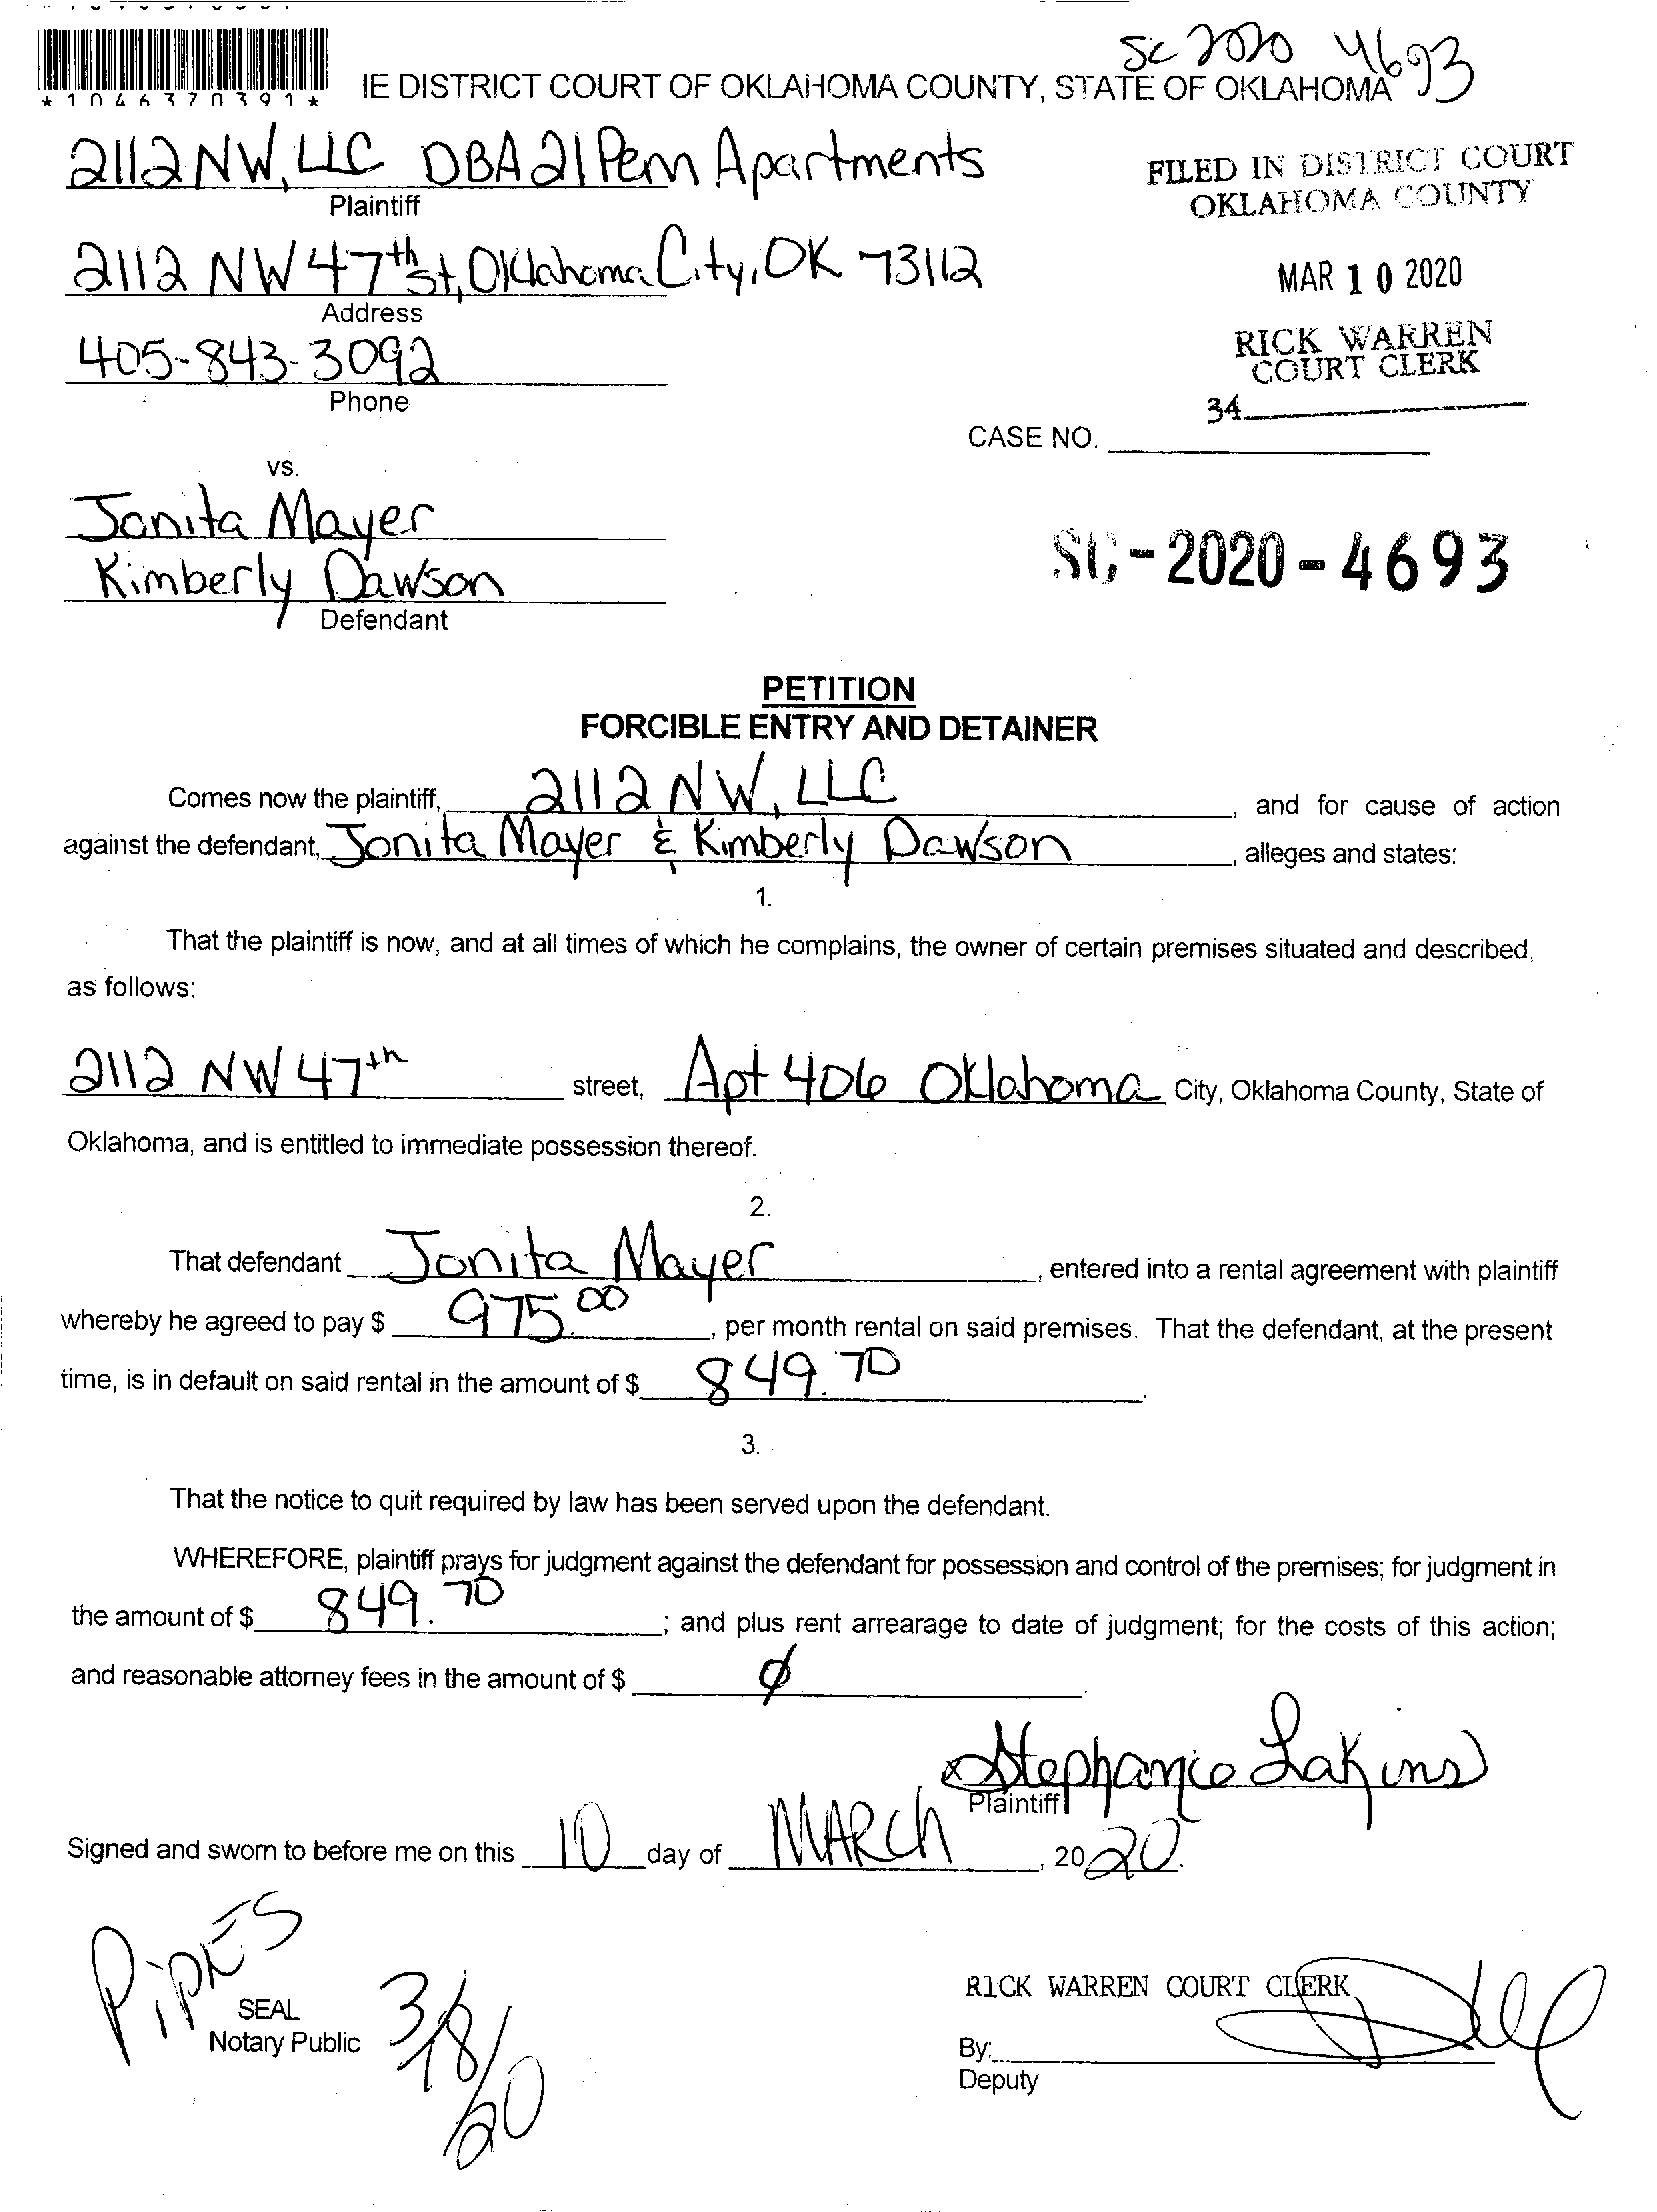 SC 2020 4693
*1046370391*
IE DISTRICT COURT OF OKLAHOMA COUNTY, STATE OF OKLAHOMA
2112 NW, LLC DBA 21 Penn Apartments
Plaintiff
FILED IN DISTRICT COURT
OKLAHOMA COUNTY
2112 NW 47th St, Oklahoma City, OK 73112
Address
MAR 10 2020
405-843-3092
Phone
RICK WARREN
COURT CLERK
34
CASE NO.
vs.
Jonita Mayer
Kimberly Dawson
Defendant
SC-2020-4693
PETITION
FORCIBLE ENTRY AND DETAINER
Comes now the plaintiff, 2112 NW, LLC, and for cause of action
against the defendant, Jonita Mayer & Kimberly Dawson, alleges and states:
1.
That the plaintiff is now, and at all times of which he complains, the owner of certain premises situated and described,
as follows:
2112 NW 47th street, Apt 406 Oklahoma City, Oklahoma County, State of
Oklahoma, and is entitled to immediate possession thereof.
2.
That defendant Jonita Mayer, entered into a rental agreement with plaintiff
whereby he agreed to pay $ 975.00, per month rental on said premises. That the defendant, at the present
time, is in default on said rental in the amount of $ 849.70.
3.
That the notice to quit required by law has been served upon the defendant.
WHEREFORE, plaintiff prays for judgment against the defendant for possession and control of the premises; for judgment in
the amount of $ 849.70; and plus rent arrearage to date of judgment; for the costs of this action;
and reasonable attorney fees in the amount of $ ∅
x Stephanie Lakins
Plaintiff
Signed and sworn to before me on this 10 day of MARCh, 2020.
PiPES
SEAL
Notary Public
3/18/20
RICK WARREN COURT CLERK
By:
Deputy